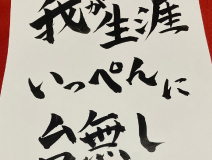 我が生涯
いっぺんに
台無し